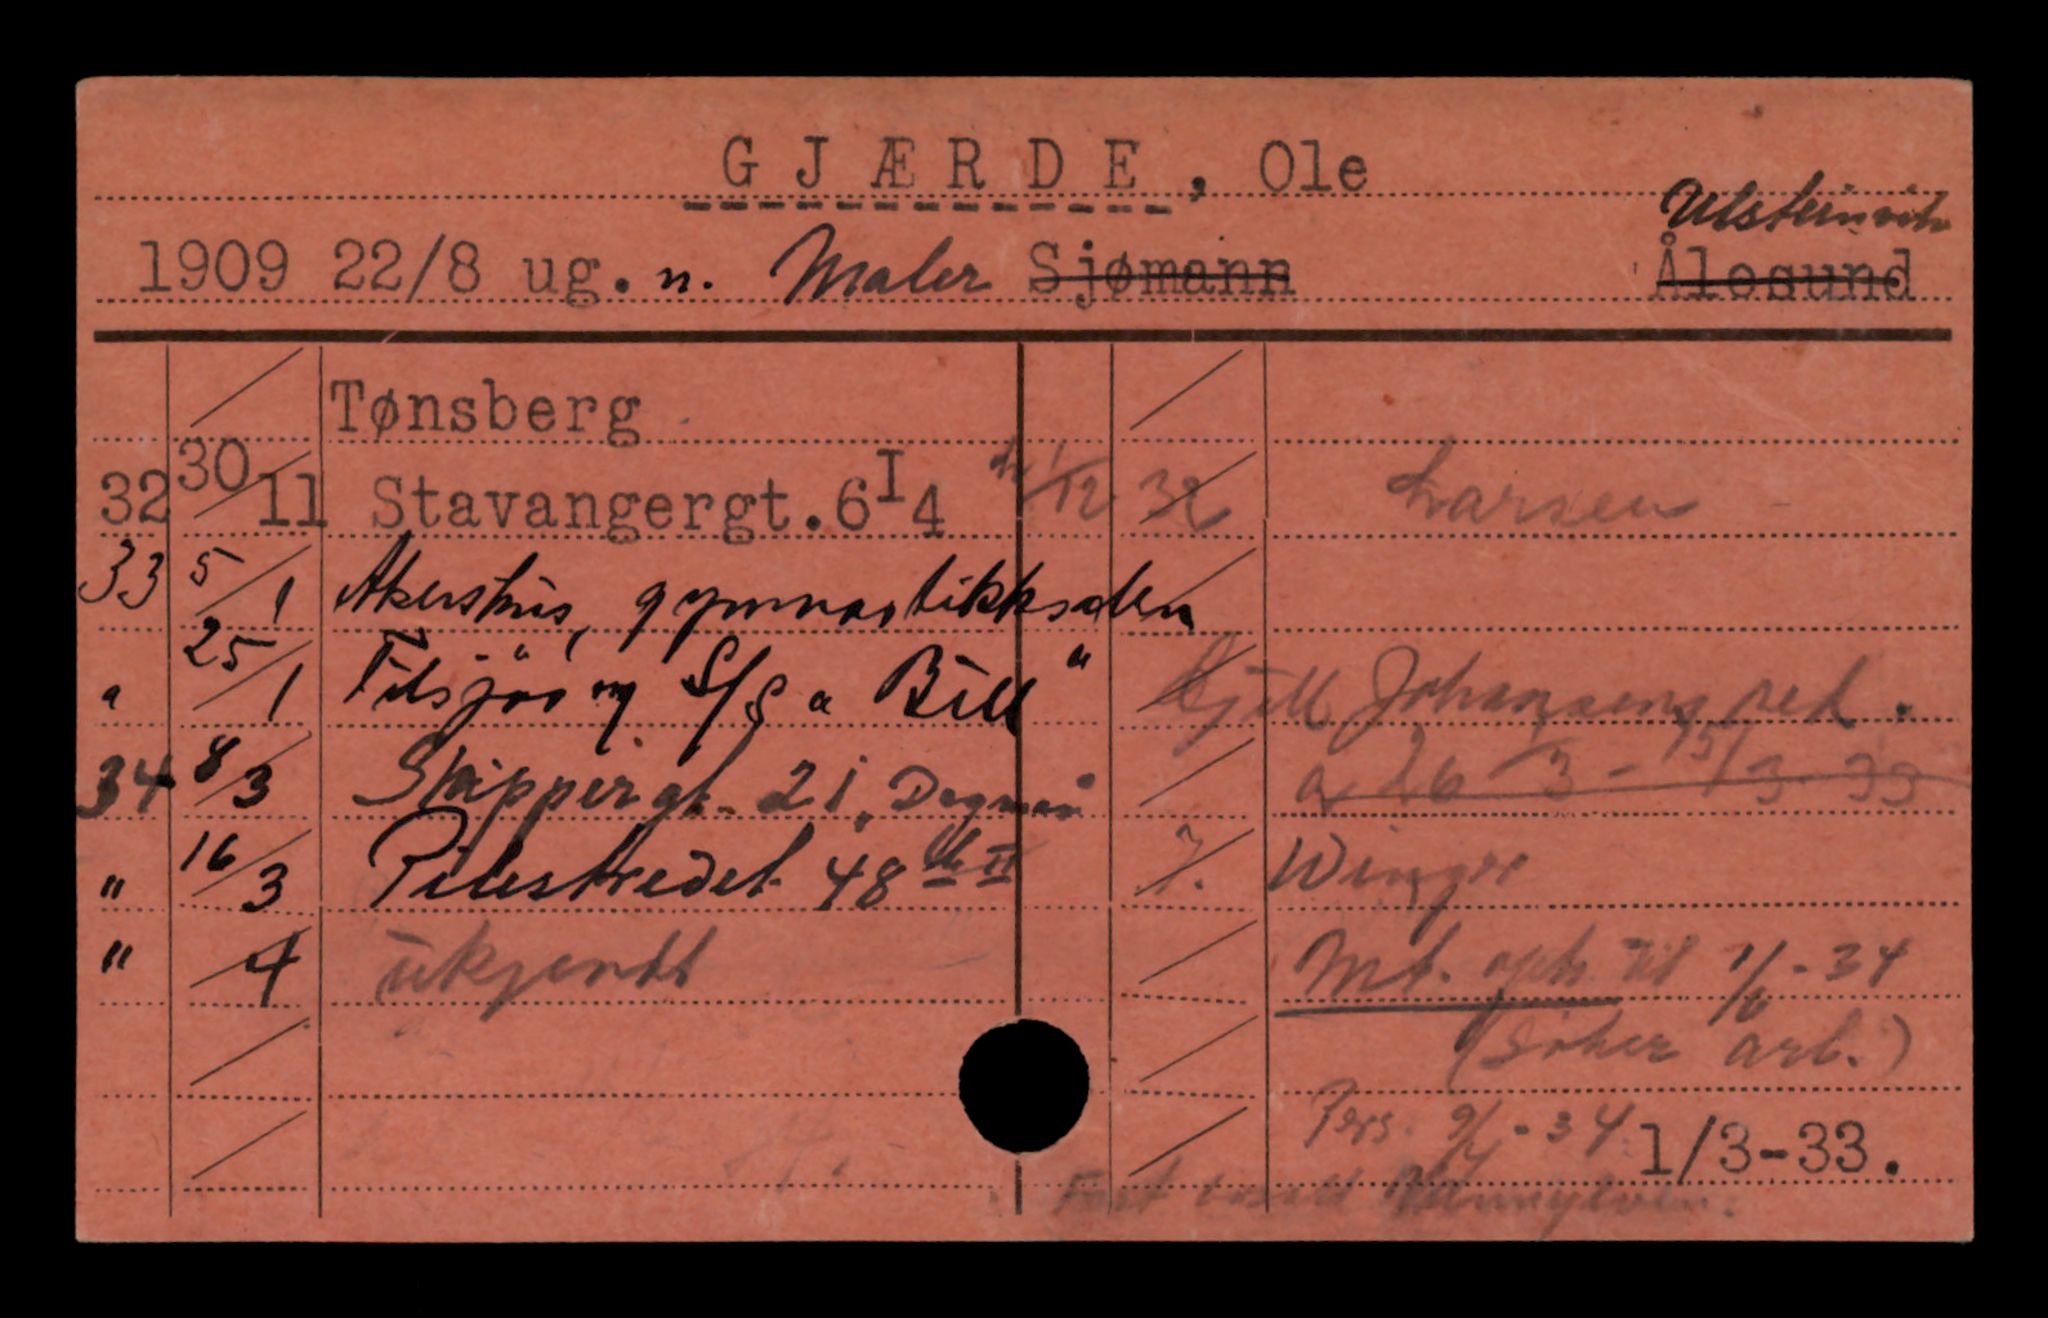 GJÆRDE, Ole
Ulsteinvik
1909 22/8 ug. n. Maler Sjømann Ålesund
Tønsberg
32 30/11 Stavangergt. 6 I 4 1/12 32 Larsen
33 5/1 Akershus, gymnastikksalen
" 25/1 Tilsjøs m/ S/S "Bill" Kjell Johansens red.
34 8/3 Skippergt. 21, Dagmar 26/3 - 15/3-33
" 16/3 Pilestredet 48 II 7. Winger
" /4 ukjendt Mt. oph. til 1/6-34
(søker arb.)
Pers. 9/4-34 1/3-33.
Fast bosatt Vannylven.